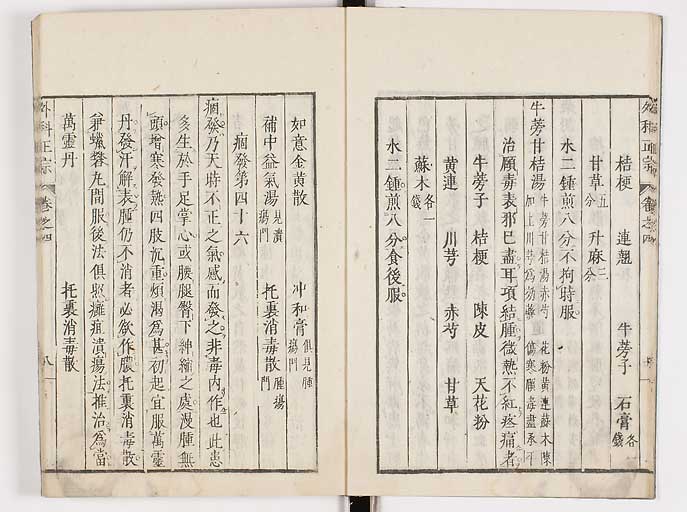 外科正宗 卷之四
桔梗 連翹 牛蒡子 石膏各一錢
甘草五分 升麻三分
水二鍾煎八分不拘時服
牛蒡甘桔湯 牛蒡甘桔湯赤芍 花粉黃連蘇木陳
加上川芎為妙藥 傷寒頤毒盡承平
治頤毒表邪已盡耳項結腫微熱不紅疼痛者
牛蒡子 桔梗 陳皮 天花粉
黃連 川芎 赤芍 甘草
蘇木各一錢
水二鍾煎八分食後服
如意金黃散 冲和膏俱見腫瘍門
補中益氣湯見潰瘍門 托裏消毒散腫瘍門
痼發第四十六
痼發乃天時不正之氣感而發之非毒內作也此患
多生於手足掌心或腰腿臀下紳縮之處漫腫無
頭增寒發熱四肢沉重煩渴為甚初起宜服萬靈
丹發汗解表腫仍不消者必欲作膿托裏消毒散
兼蠟礬丸間服後法俱照癰疽潰瘍法推治為當
萬靈丹 托裏消毒散
外科正宗 卷之四 八